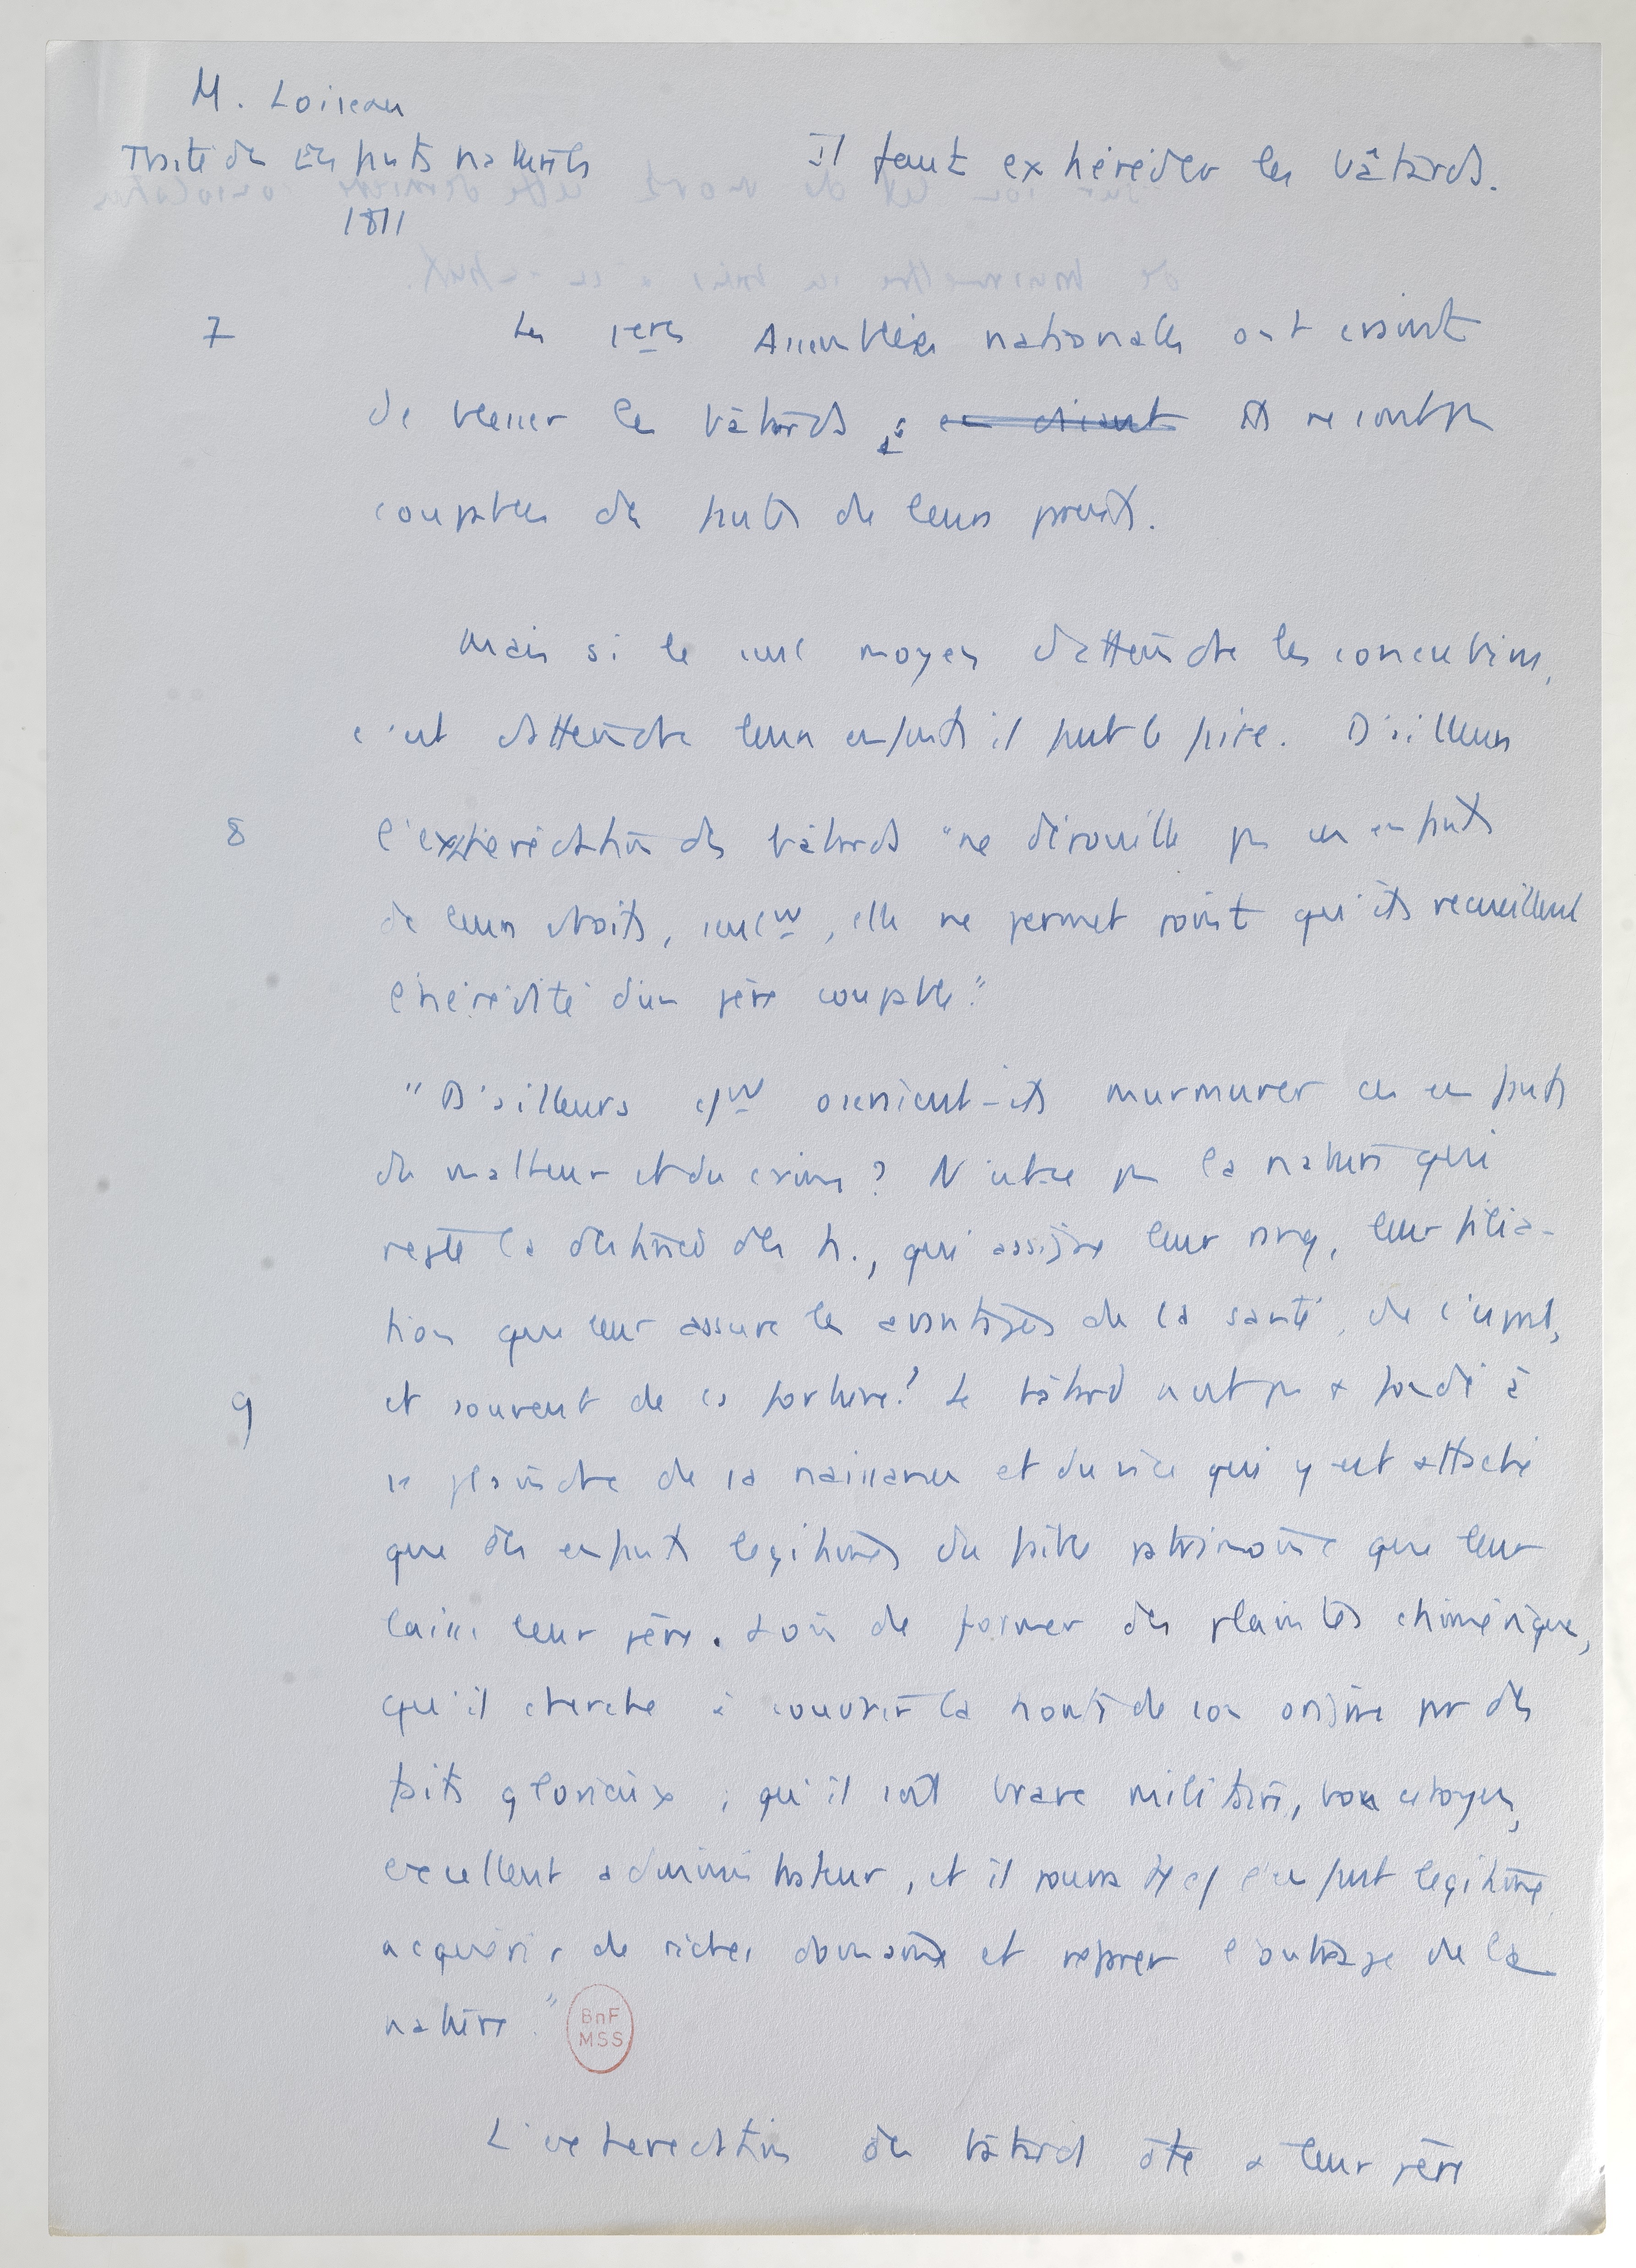 M. Loiseau
Traité des Enfants naturels
1811
Il faut exhéréder les bâtards.
7 Les 1ères Assemblées nationales ont craint
de blesser les bâtards ; en disant ils ne sont pas
coupables des fautes de leurs parents.
Mais si le seul moyen d'atteindre les concubins,
c'est d'atteindre leurs enfants il faut le faire. D'ailleurs
8 l'exhérédation des bâtards "ne dépouille pas ces enfants
de leurs droits, seulᵗ, elle ne permet point qu'ils recueillent
l'hérédité d'un père coupable."
"D'ailleurs oseraient-ils murmurer ces enfants
du malheur et du crime ? N'est-ce pas la nature qui
règle la destinée des h., qui assigne leur rang, leur filia-
tion que leur assure les avantages de la santé, de l'esprit,
9 et souvent de la fortune ? Le bâtard n'est pas + fondé à
se plaindre de sa naissance et du vice qui y est attaché
que des enfants légitimes du faible patrimoine que leur
laisse leur père. Loin de former des plaintes chimériques,
qu'il cherche à couvrir la honte de son origine par des
faits glorieux ; qu'il soit brave militaire, bon citoyen,
excellent administrateur, et il pourra l'enfant légitime
acquérir de riches domaines et réparer l'outrage de la
nature."
BnF
MSS
L'exhérédation des bâtards ôte à leur père